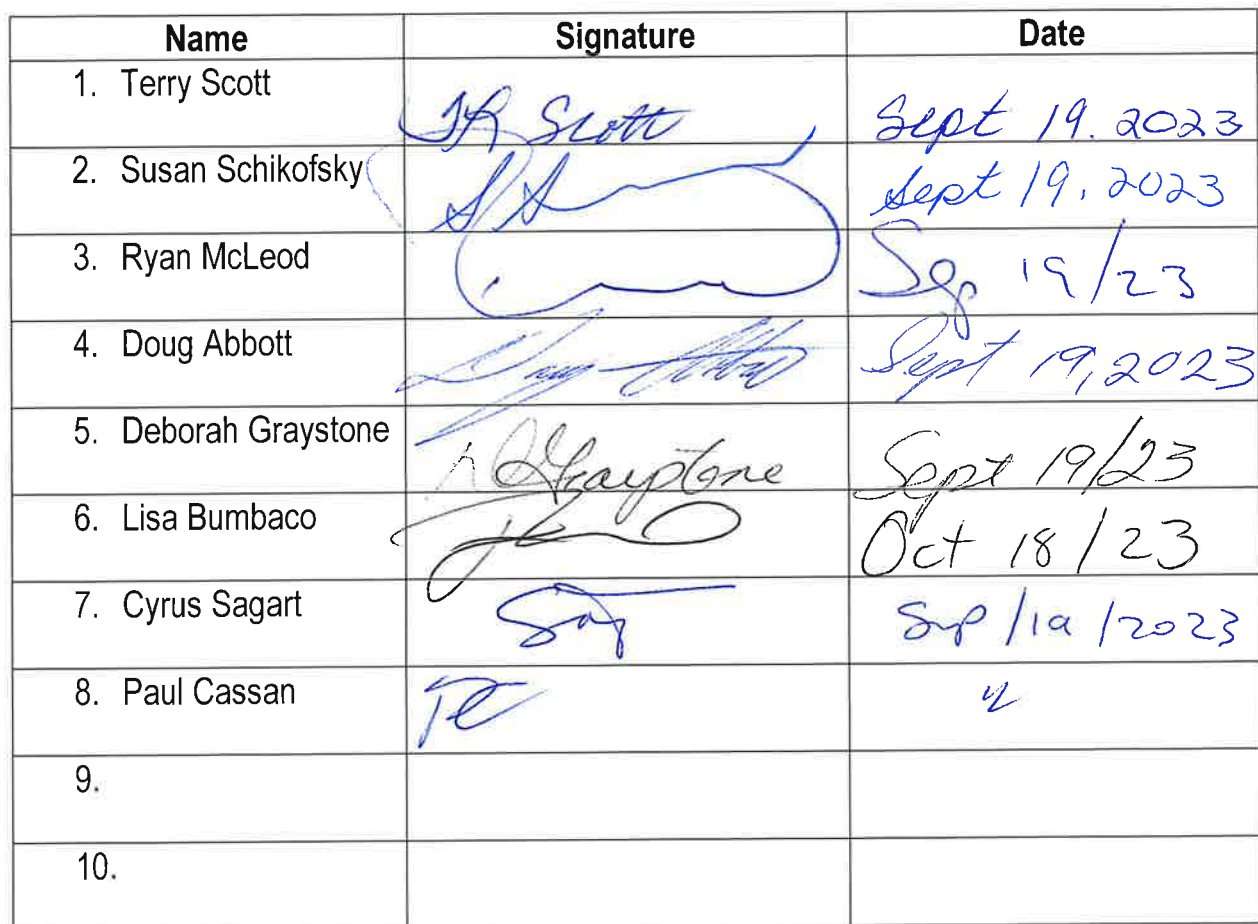 Name Signature Date
1. Terry Scott JR Scott Sept 19. 2023
2. Susan Schikofsky Sept 19, 2023
3. Ryan McLeod Sep 19/23
4. Doug Abbott Doug Abbott Sept 19, 2023
5. Deborah Graystone D Graystone Sept 19/23
6. Lisa Bumbaco Oct 18/23
7. Cyrus Sagart Sep/19/2023
8. Paul Cassan PC "
9.
10.